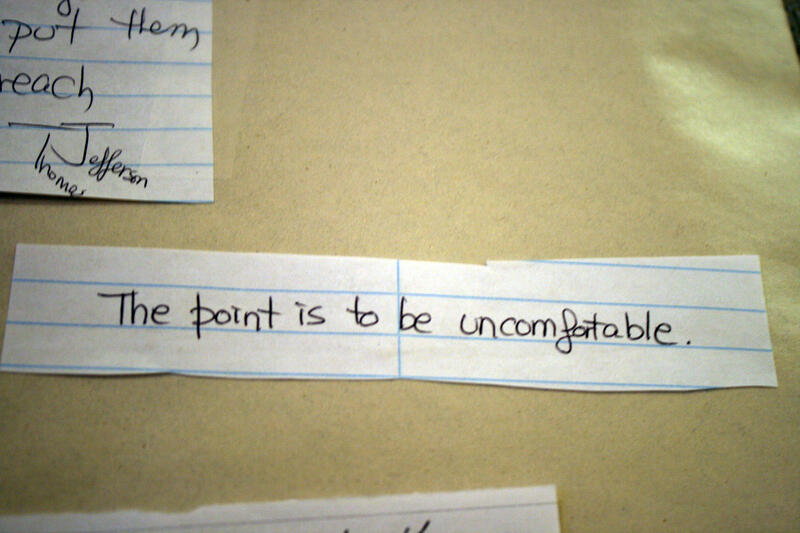 put them
reach
Thomas Jefferson
The point is to be uncomfortable.